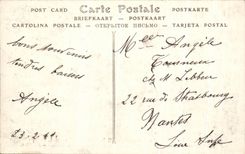 POST CARD Carte Postale POSTKARTE
BRIEFKAART POSTKAART
CARTOLINA POSTALE ОТКРЫТОЕ ПИСЬМО TARJETA POSTAL
Bons Souvenirs
tendres baisers
Angèle
23-2-
Melle Angèle
22 rue de Strasbourg
Nantes
Loire Infre